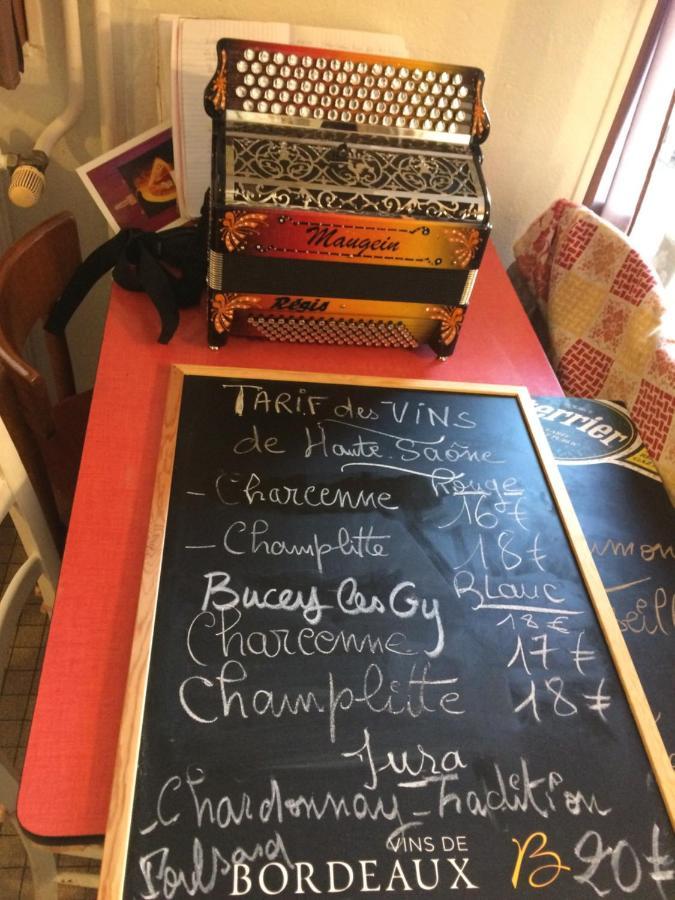 Maugein
Régis
TARIF des VINS
de Haute-Saône
Rouge
- Charcenne 16€
- Champlitte 18€
Blanc
Bucey les Gy 18€
Charcenne 17€
Champlitte 18€
Jura
- Chardonnay - Tradition
Poulsard 20€
VINS DE
BORDEAUX B
Perrier